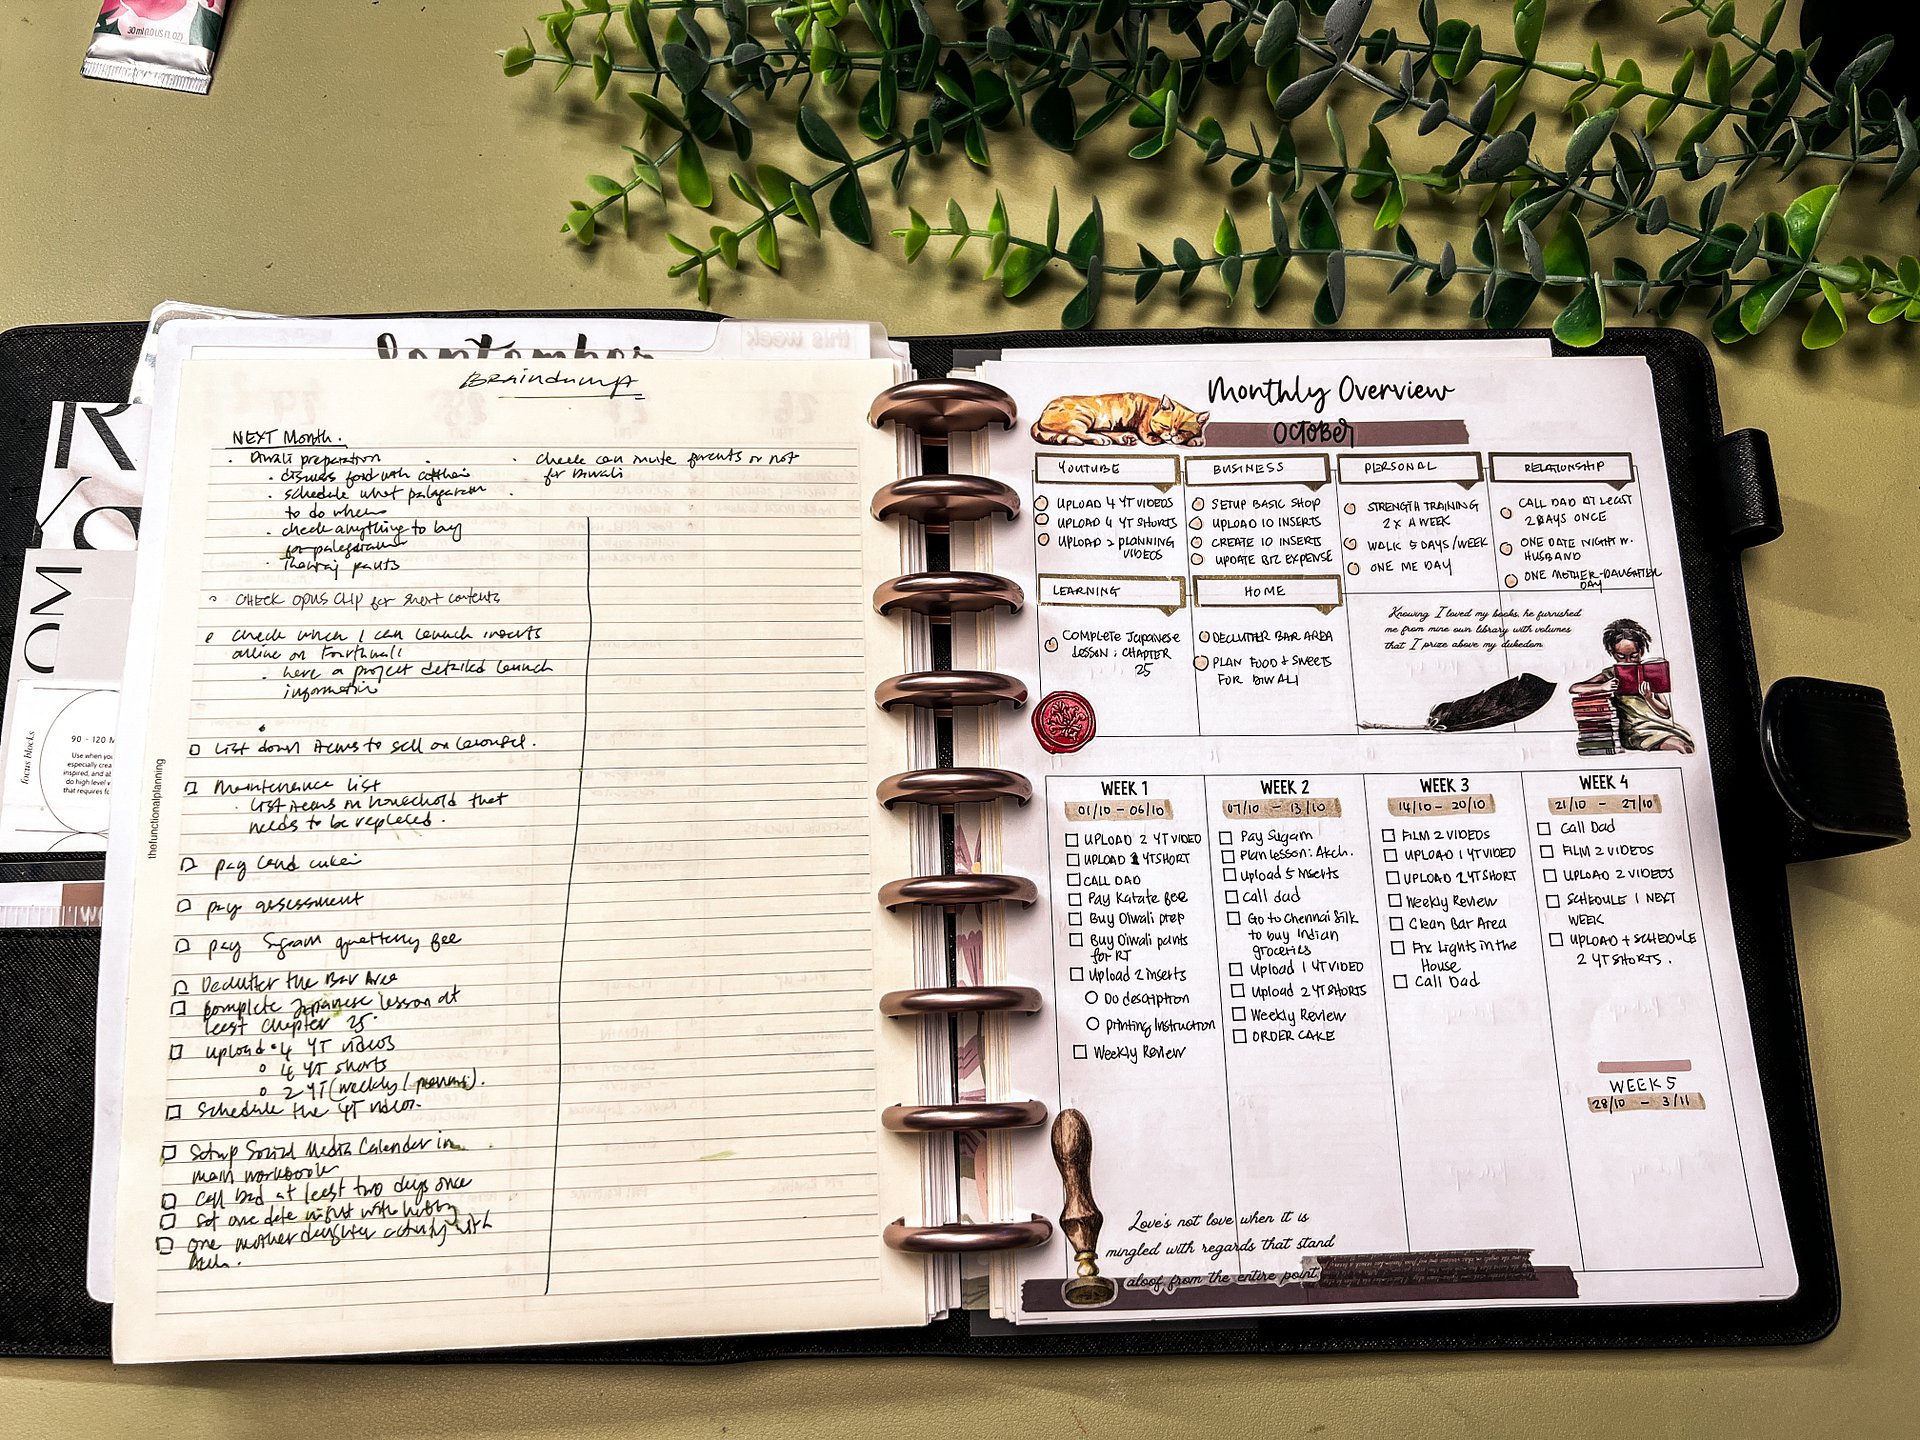 30ml (1.0 US FL OZ)
this week
September
Braindump
NEXT Month.
Diwali preparation
discuss food with
schedule what
to do when
check anything to buy
for
pants
check can invite parents or not
for Diwali
CHECK OPUS CLIP for short contents
check when I can launch inserts
online on Fourthwall
have a project detailed launch
information
List down items to sell on Carousel.
Maintenance list
List items in household that
needs to be replaced.
pay land
pay assessment
pay Sygam quarterly fee
Declutter the Bar Area
Complete Japanese lesson at
least chapter 25.
upload 4 YT videos
4 YT shorts
2 YT (weekly /
Schedule the YT videos.
Setup Social Media Calendar in
main workbook
Call Dad at least two days once
Set one date night with hubby
one mother daughter activity with
thefunctionalplanning
focus blocks
90 - 120 M
Use when you
especially crea
inspired, and ab
do high level v
that requires fo
Monthly Overview
OCTOBER
YOUTUBE
UPLOAD 4 YT VIDEOS
UPLOAD 4 YT SHORTS
UPLOAD 2 PLANNING
VIDEOS
BUSINESS
SETUP BASIC SHOP
UPLOAD 10 INSERTS
CREATE 10 INSERTS
UPDATE BIZ EXPENSE
PERSONAL
STRENGTH TRAINING
2 X A WEEK
WALK 5 DAYS/WEEK
ONE ME DAY
RELATIONSHIP
CALL DAD AT LEAST
2 DAYS ONCE
ONE DATE NIGHT W.
HUSBAND
ONE MOTHER-DAUGHTER
DAY
LEARNING
COMPLETE JAPANESE
LESSON : CHAPTER
25
HOME
DECLUTTER BAR AREA
PLAN FOOD + SWEETS
FOR DIWALI
Knowing I loved my books, he furnished
me from mine own library with volumes
that I prize above my dukedom
WEEK 1
01/10 - 06/10
UPLOAD 2 YT VIDEO
UPLOAD 1 YT SHORT
CALL DAD
Pay Karate fee
Buy Diwali prep
Buy Diwali pants
for RT
Upload 2 inserts
Do description
Printing Instruction
Weekly Review
WEEK 2
07/10 - 13/10
Pay Sygam
Plan lesson: Akch.
Upload 5 Inserts
Call dad
Go to Chennai Silk
to buy Indian
groceries
Upload 1 YT VIDEO
Upload 2 YT SHORTS
Weekly Review
ORDER CAKE
WEEK 3
14/10 - 20/10
FILM 2 VIDEOS
UPLOAD 1 YT VIDEO
UPLOAD 2 YT SHORT
Weekly Review
Clean Bar Area
Fix Lights in the
House
Call Dad
WEEK 4
21/10 - 27/10
Call Dad
FILM 2 VIDEOS
UPLOAD 2 VIDEOS
SCHEDULE 1 NEXT
WEEK
UPLOAD + SCHEDULE
2 YT SHORTS.
WEEK 5
28/10 - 3/11
Love's not love when it is
mingled with regards that stand
aloof from the entire point